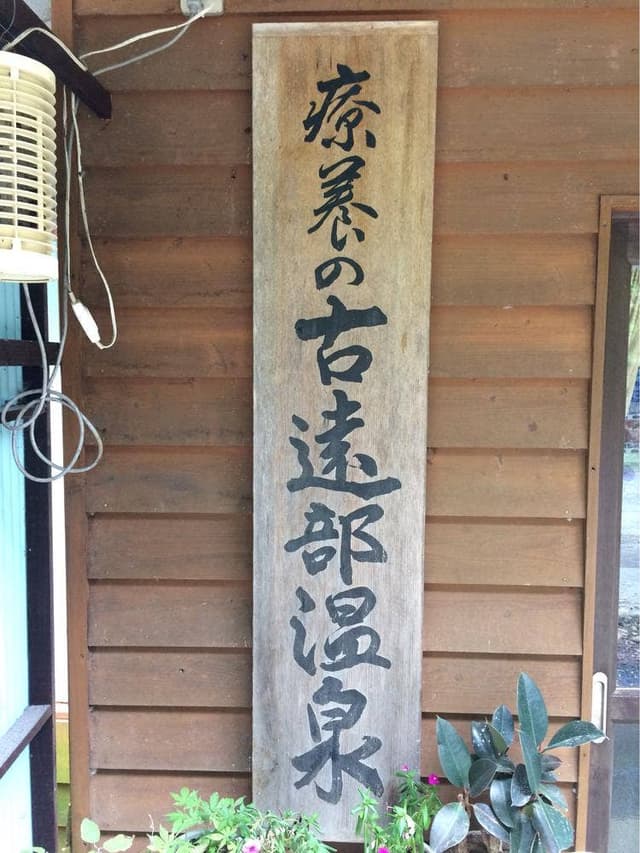 療養の古遠部温泉